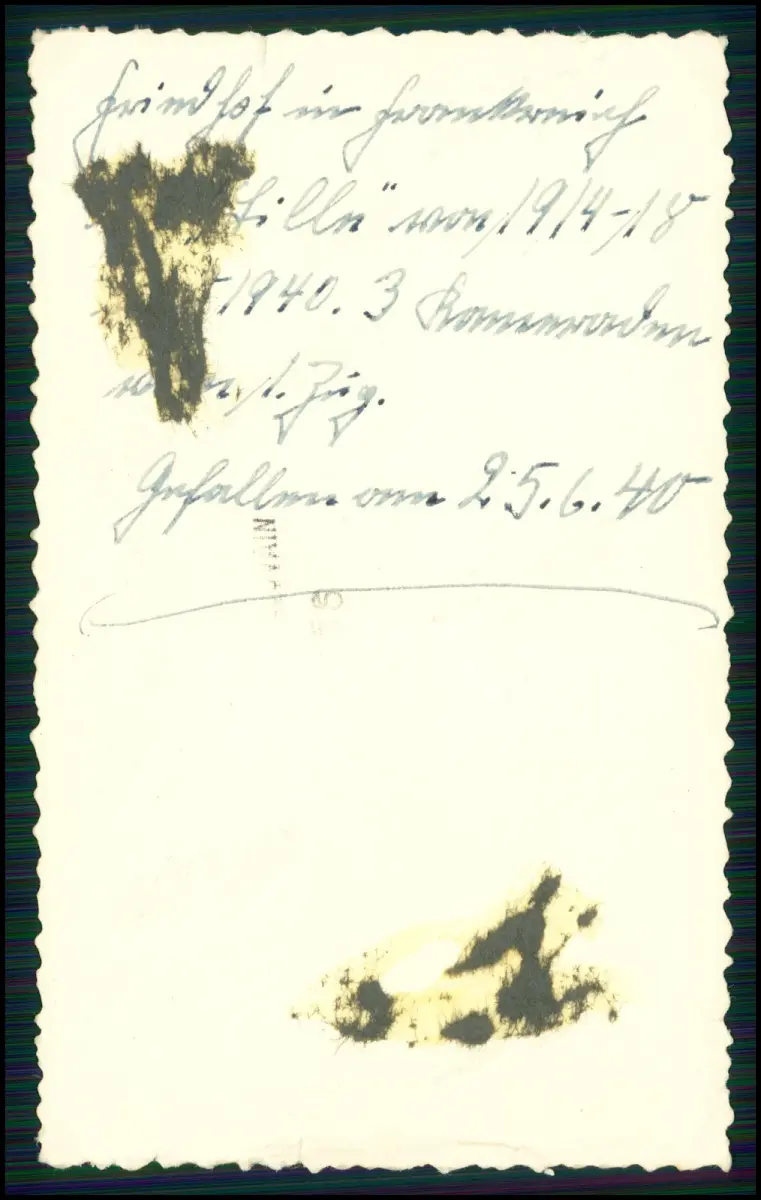 Friedhof in Frankreich
"Lille" von 1914-18
1940. 3 Kameraden
vom 1. Zug.
Gefallen am 25.6.40